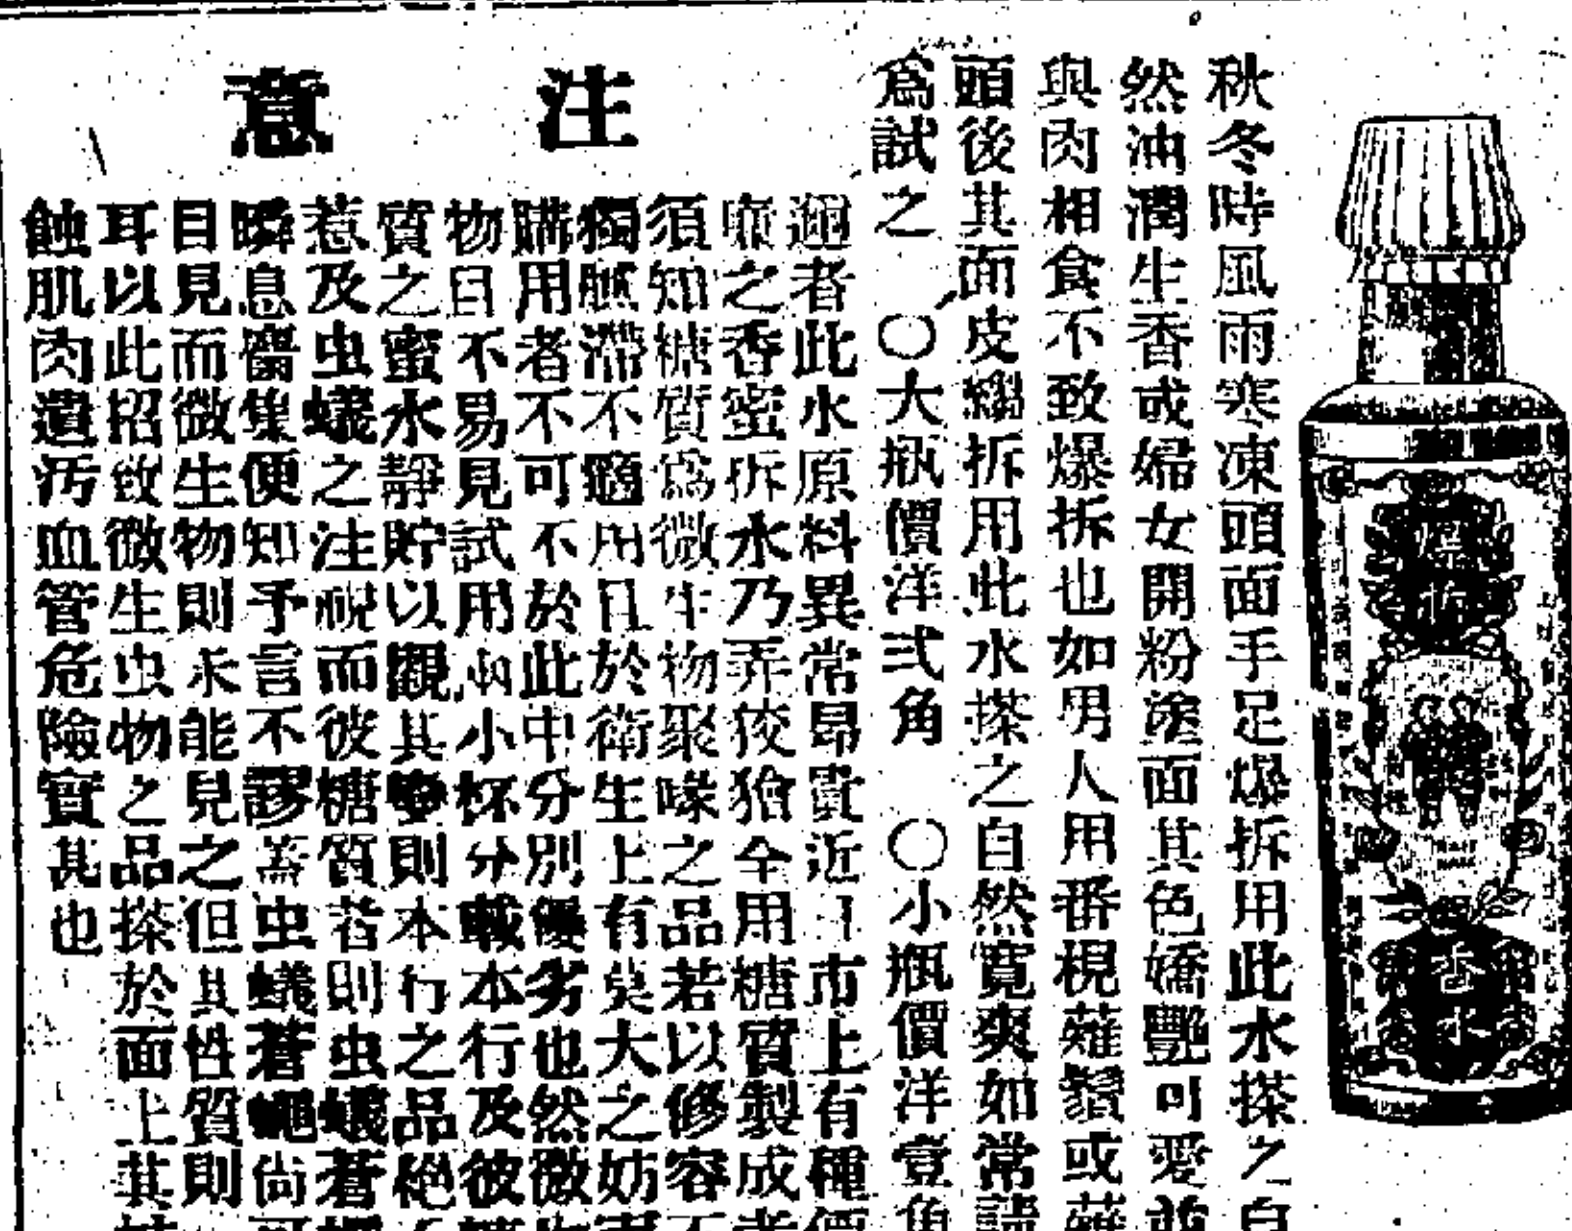 秋冬時風雨寒凍頭面手足爆拆用此水搽之自
然油潤生香或婦女開粉塗面其色嬌艷可愛並
與肉相食不致爆拆也如男人用番梘薙鬚或薙
頭後其面皮縐拆用此水搽之自然寬爽如常請
爲試之 〇大瓶價洋弍角 〇小瓶價洋壹角
注意
邇者此水原料異常昂貴近日市上有種價
廉之香蜜拆水乃弄狡獪全用糖質製成者
須知糖質爲微生物聚喙之品若以修容不
獨膩滯不適用且於衛生上有莫大之妨害
購用者不可不於此中分別優劣也然微生
物目不易見試用兩小杯分載本行及彼糖
質之蜜水靜貯以觀其變則本行之品絕不
惹及虫蟻之注視而彼糖質者則虫蟻蒼蠅
瞬息麕集便知予言不謬蓋虫蟻蒼蠅尚可
目見而微生物則未能見之但其性質則
耳以此招致微生虫物之品搽於面上其
蝕肌肉遺污血管危險實甚也
爆拆
香水